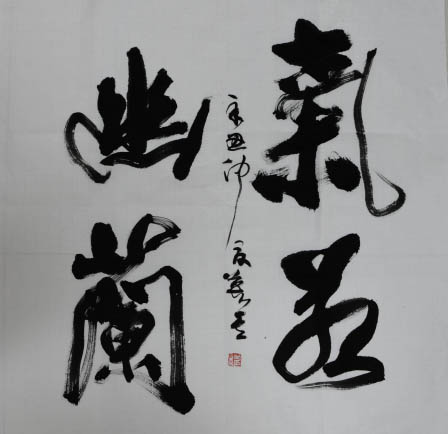 氣若
幽蘭
辛丑仲夏